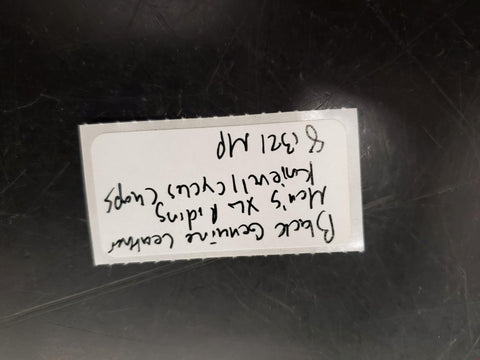 Black Genuine Leather
Men's XL Riding
Knievell Cycles Chaps
8321 MP